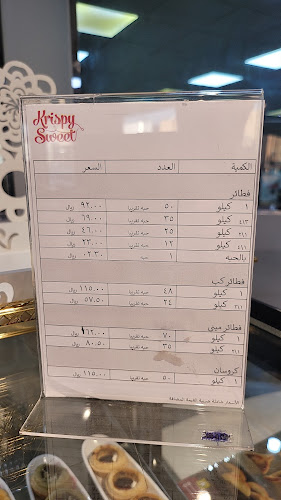 Krispy
Sweet
الكمية العدد السعر
فطائر
١ كيلو ٥٠ حبه تقريبا ٩٢.٠٠ ريال
٤\٣ كيلو ٣٥ حبه تقريبا ٦٩.٠٠ ريال
٢\١ كيلو ٢٥ حبه تقريبا ٤٦.٠٠ ريال
٤\١ كيلو ١٢ حبه تقريبا ٢٣.٠٠ ريال
بالحبه ١ حبه ٠٢.٣٠ ريال
فطائر كب
١ كيلو ٤٨ حبه تقريبا ١١٥.٠٠ ريال
٢\١ كيلو ٢٤ حبه تقريبا ٥٧.٥٠ ريال
فطائر ميني
١ كيلو ٧٠ حبه تقريبا ١٦٢.٠٠ ريال
٢\١ كيلو ٣٥ حبه تقريبا ٨٠.٥٠ ريال
كروسان
١ كيلو ٥٠ حبه تقريبا ١١٥.٠٠ ريال
الأسعار شاملة ضريبة القيمة المضافة